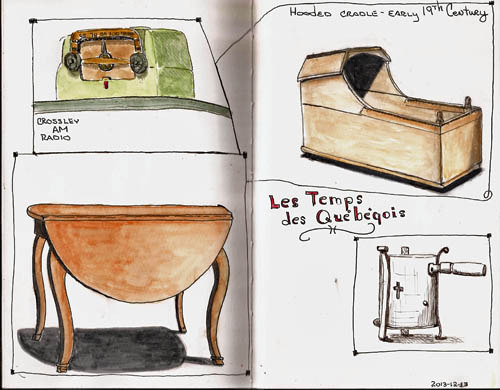 HOODED CRADLE - EARLY 19TH CENTURY
CROSSLEY
AM
RADIO
Les Temps
des Québéqois
2013-12-13